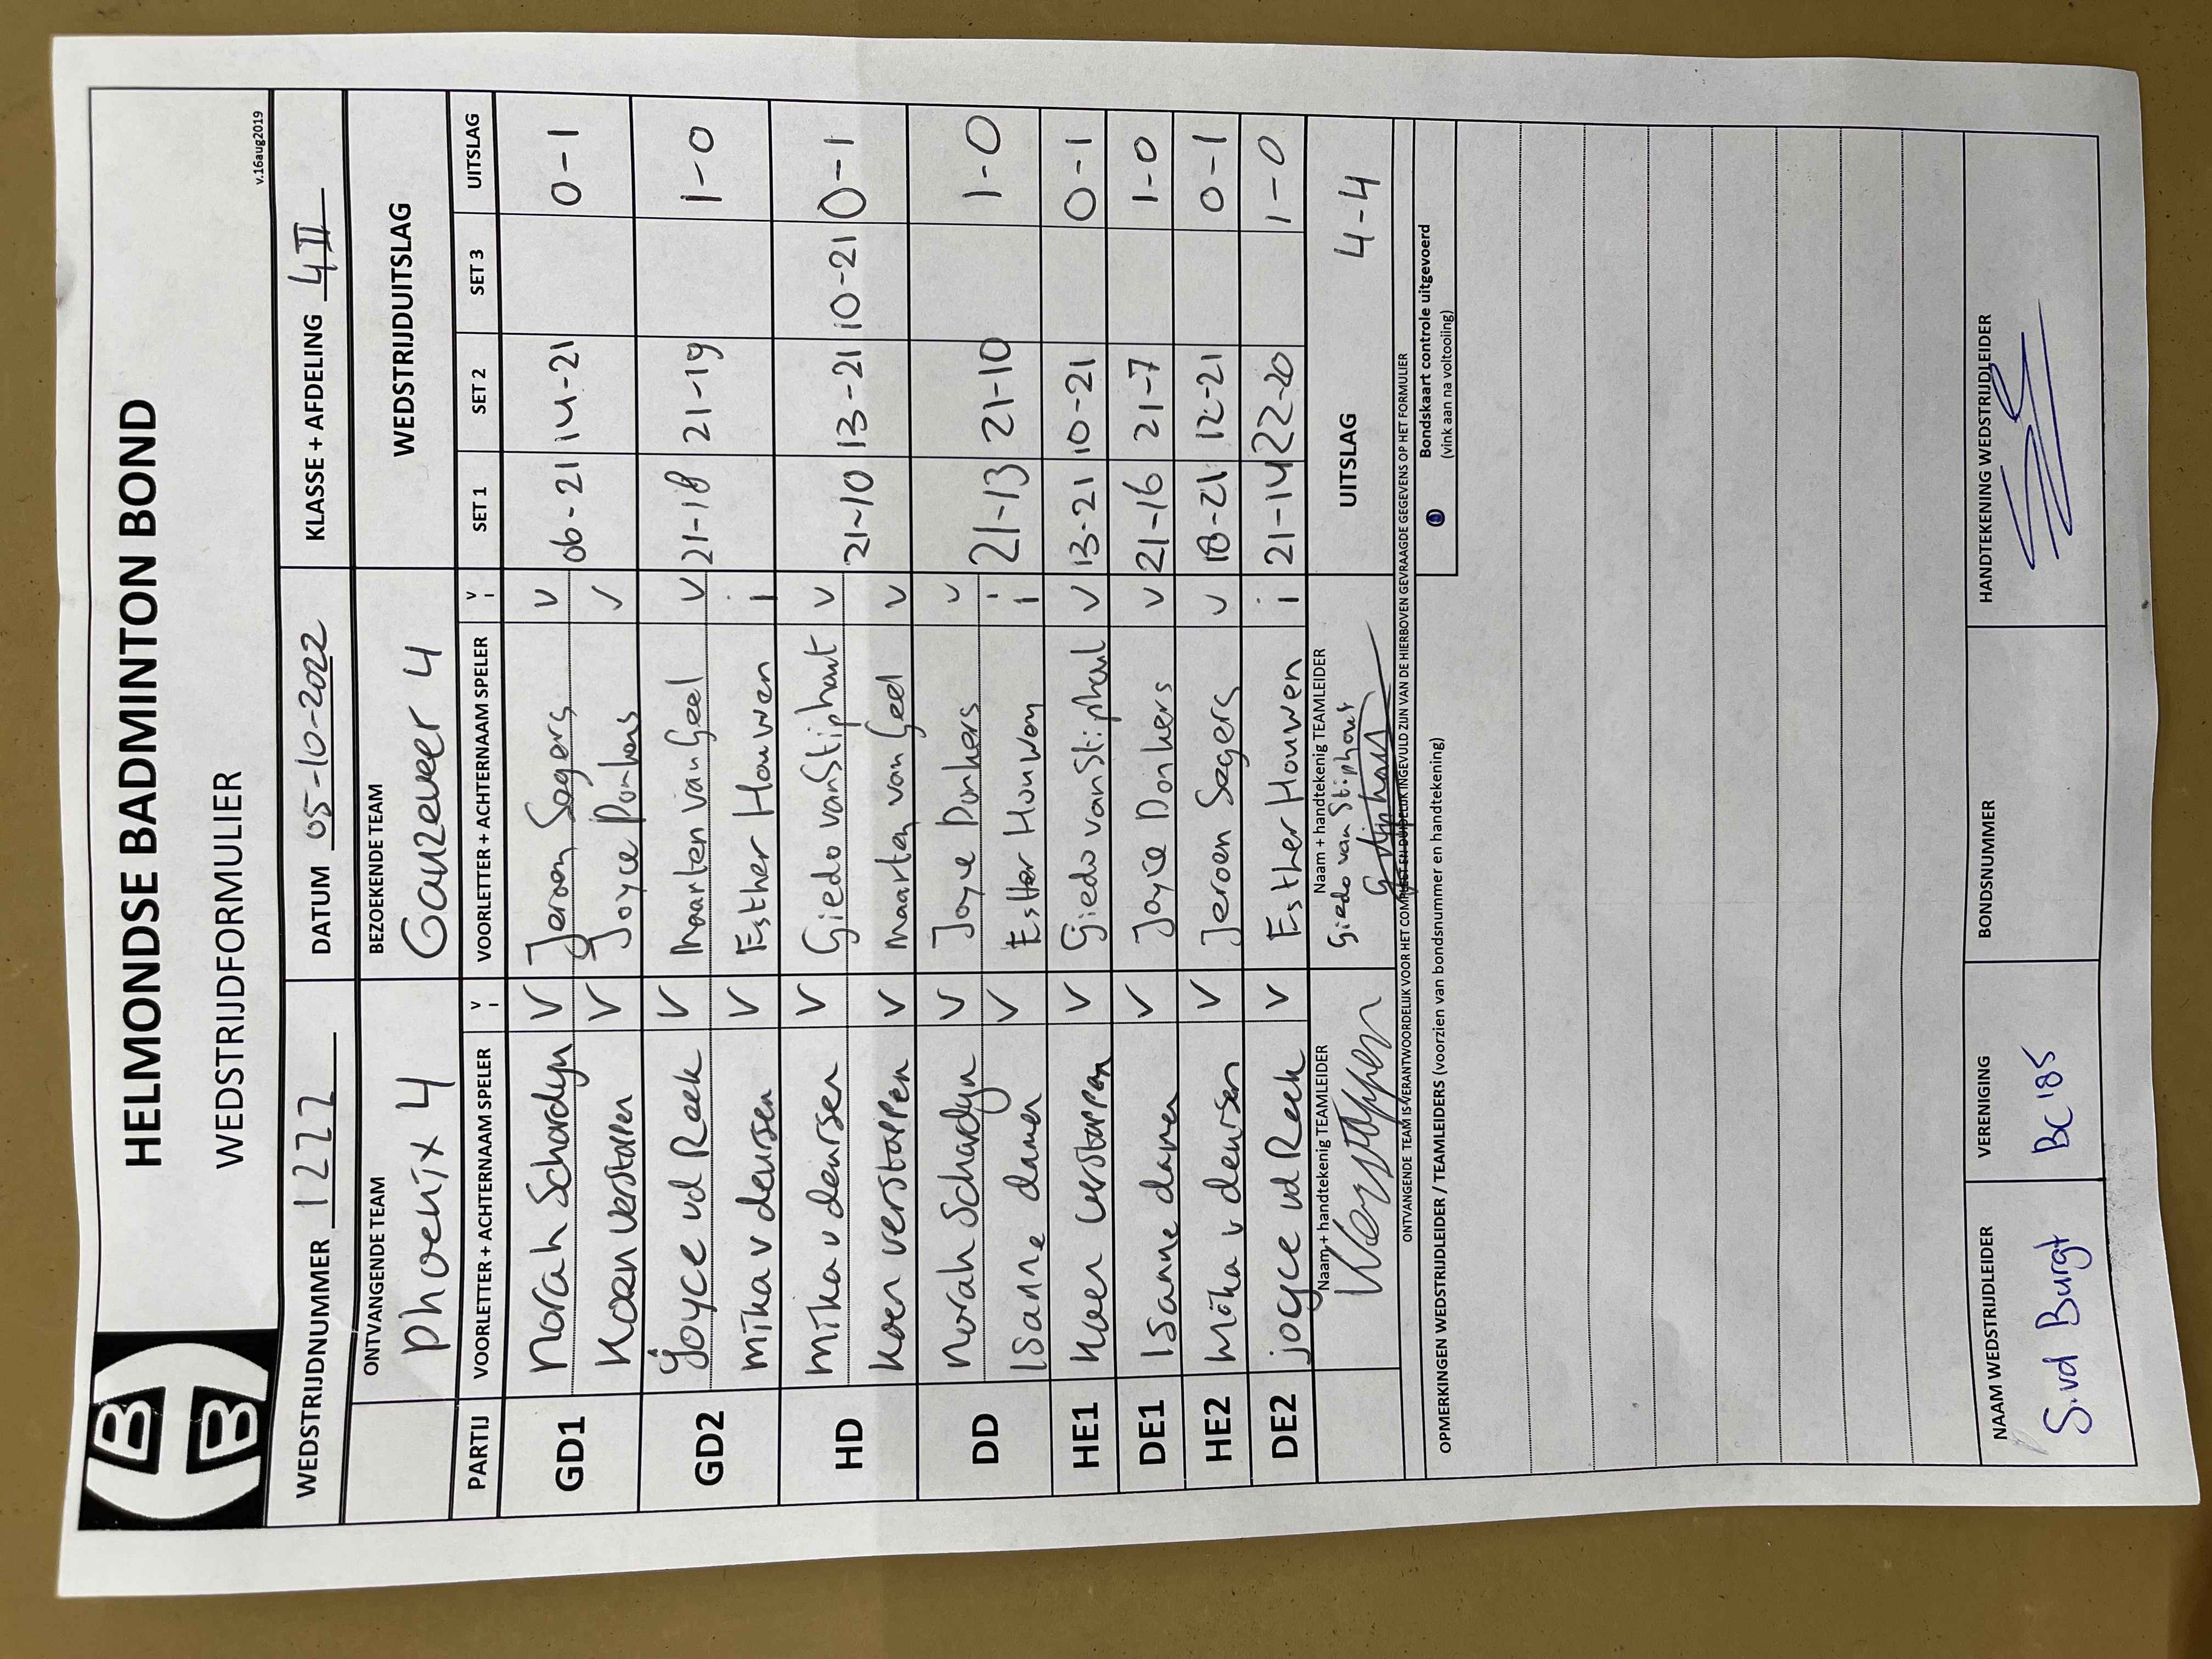 HELMONDSE BADMINTON BOND
WEDSTRIJDFORMULIER
v.16aug2019
WEDSTRIJDNUMMER 1222 DATUM 05-10-2022 KLASSE + AFDELING 4II
ONTVANGENDE TEAM BEZOEKENDE TEAM WEDSTRIJDUITSLAG
Phoenix 4 Ganzeveer 4
PARTIJ VOORLETTER + ACHTERNAAM SPELER V i VOORLETTER + ACHTERNAAM SPELER V i SET 1 SET 2 SET 3 UITSLAG
GD1 Norah Schardijn V Jeroen Segers V 06-21 14-21 0-1
Koen verstappen V Joyce Donkers V
GD2 Joyce vd Reek V Maarten van Geel V 21-18 21-19 1-0
mika v deursen V Esther Houwen i
HD mika v deursen V Giedo van Stiphout V 21-10 13-21 10-21 0-1
Koen verstappen V Maarten van Geel V
DD Norah Schardijn V Joyce Donkers V 21-13 21-10 1-0
Isanne damen V Esther Houwen i
HE1 Koen verstappen V Giedo van Stiphout V 13-21 10-21 0-1
DE1 Isanne damen V Joyce Donkers V 21-16 21-7 1-0
HE2 Mika v deursen V Jeroen Segers V 18-21 12-21 0-1
DE2 joyce vd Reek V Esther Houwen i 21-14 22-20 1-0
Naam + handtekenig TEAMLEIDER Naam + handtekenig TEAMLEIDER UITSLAG 4-4
Giedo van Stiphout
ONTVANGENDE TEAM IS VERANTWOORDELIJK VOOR HET COMPLEET EN DUIDELIJK INGEVULD ZIJN VAN DE HIERBOVEN GEVRAAGDE GEGEVENS OP HET FORMULIER
OPMERKINGEN WEDSTRIJDLEIDER / TEAMLEIDERS (voorzien van bondsnummer en handtekening)
Bondskaart controle uitgevoerd
(vink aan na voltooiing)
NAAM WEDSTRIJDLEIDER VERENIGING BONDSNUMMER HANDTEKENING WEDSTRIJDLEIDER
S. vd Burgt BC'85